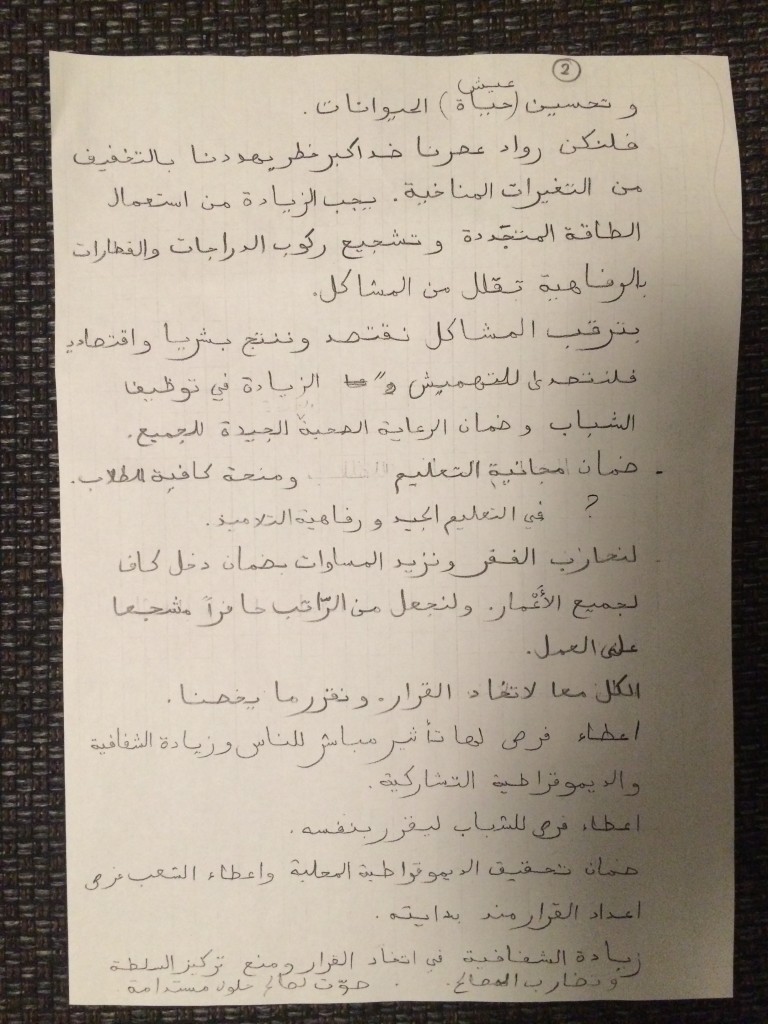 2
عيش
و تحسين (حياة) الحيوانات.
فلنكن رواد عصرنا ضد اكبر خطر يهددنا بالتخفيف
من التغيرات المناخية. يجب الزيادة من استعمال
الطاقة المتجددة و تشجيع ركوب الدراجات والقطارات
بالرفاهية تقلل من المشاكل.
بترقب المشاكل نقتصد وننتج بشريا واقتصاديا
فلنتحدى للتهميش و الزيادة في توظيف
الشباب و ضمان الرعاية الصحية الجيدة للجميع.
- ضمان مجانية التعليم ومنحة كافية للطلاب.
? في التعليم الجيد و رفاهية التلاميذ.
- لنحارب الفقر ونزيد المساوات بضمان دخل كاف
لجميع الأَعْمار. ولنجعل من الرّاتب حافزاً مشجعا
على العمل.
الكل معا لاتخاد القرار. و نقرر ما يخصنا.
اعطاء فرص لها تأثير مباشر للناس وزيادة الشفافية
والديموقراطية التشاركية.
اعطاء فرص للشباب ليقرر بنفسه.
ضمان تحقيق الديموقراطية المحلية واعطاء الشعب فرص
اعداد القرار مند بدايته.
زيادة الشفافية في اتخاد القرار و منع تركيز السلطة
وتضارب المصالح. صوّت لصالح حلول مستدامة